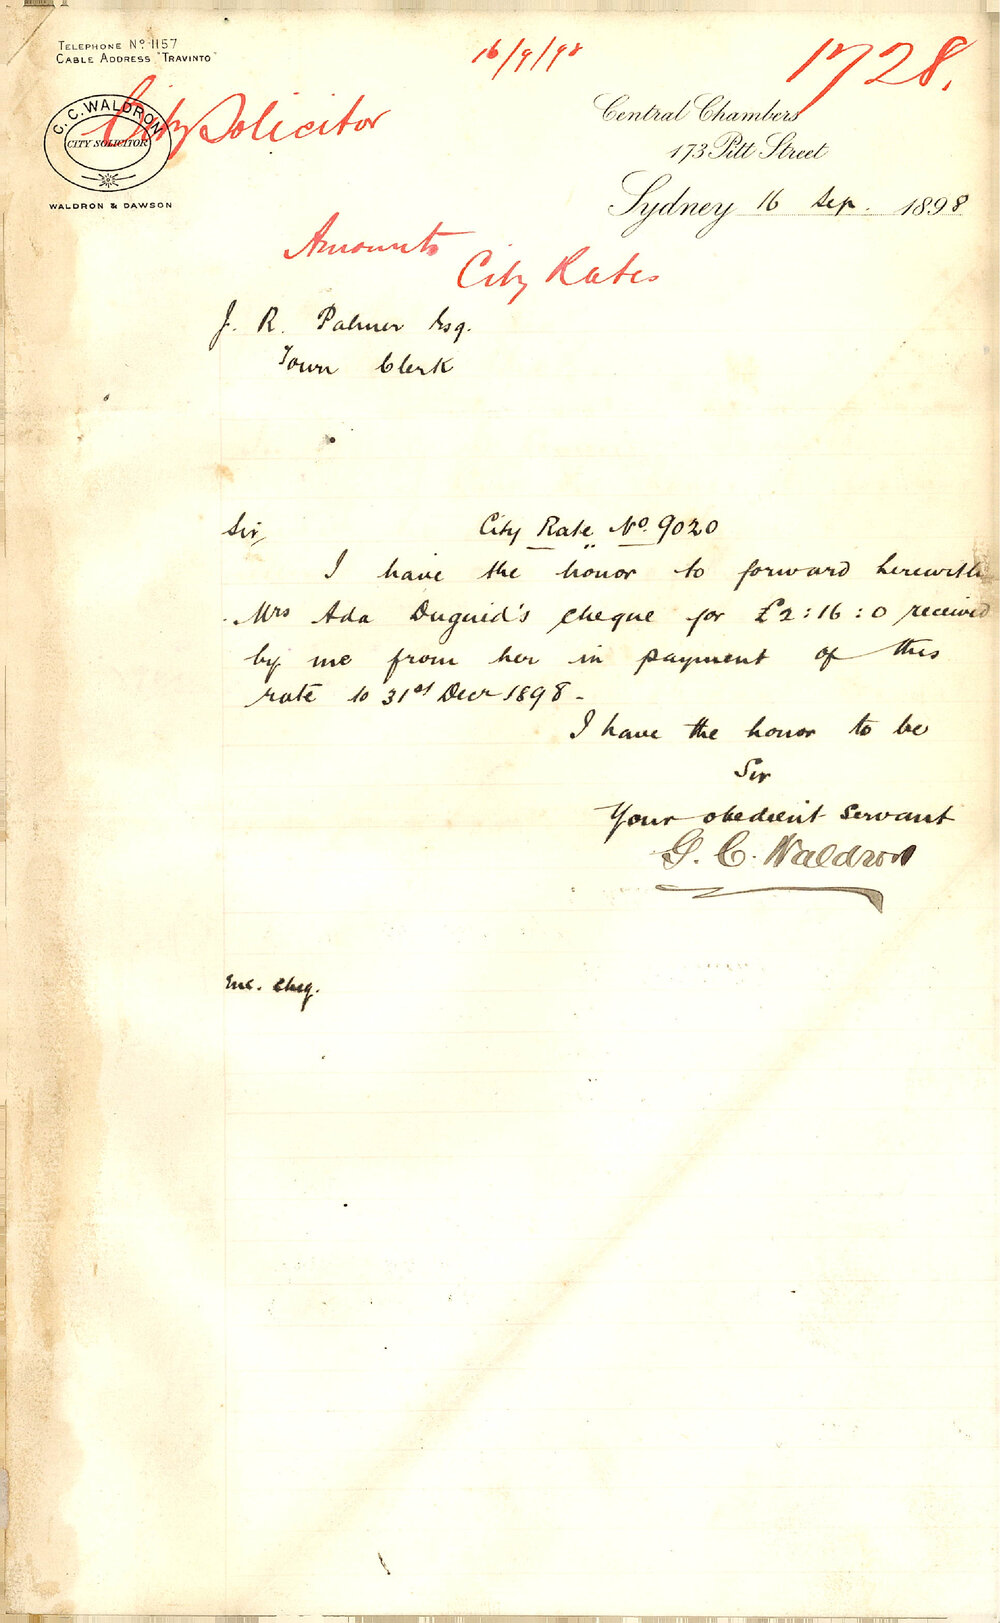 TELEPHONE No. 1157
CABLE ADDRESS "TRAVINTO"
16/9/98
1728.
C. C. WALDRON
CITY SOLICITOR
WALDRON & DAWSON
City Solicitor
Central Chambers
173 Pitt Street
Sydney 16 Sep. 1898
Amounts
City Rates
J. R. Palmer Esq.
Town Clerk
Sir,
City Rate No. 9020
I have the honor to forward herewith
Mrs Ada Duguid's cheque for £2:16:0 received
by me from her in payment of this
rate to 31st Decr 1898-
I have the honor to be
Sir
Your obedient servant
G. C. Waldron
Enc. Cheq.